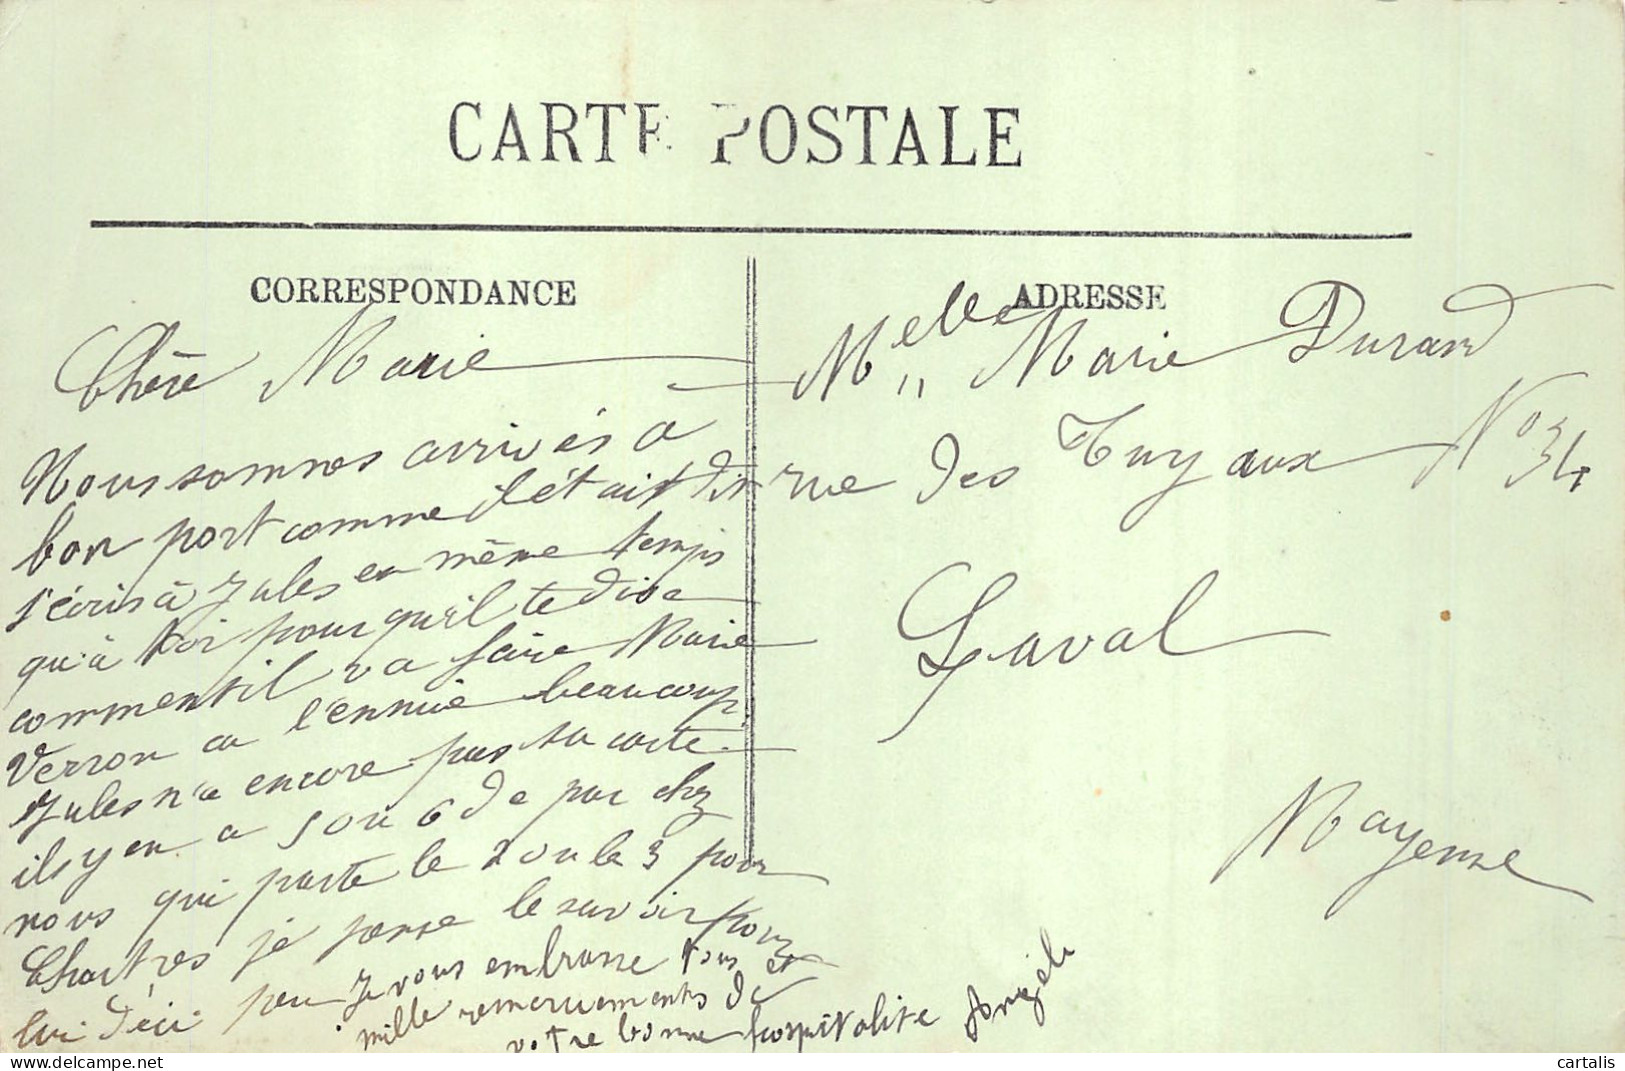 CARTE POSTALE
CORRESPONDANCE
Chère Marie
Nous sommes arrivés à
bon port comme s'était dit
j'écris à Jules en même temps
qu'à toi pour qu'il te dise
comment il va faire Marie
Verron ca l'ennuie beaucoup
Jules n'a encore pas sa carte
ils y en a 5 ou 6 de par chez
nous qui parte le 2 ou le 3 pour
Chartres je pense le savoir pour
lui d'ici peu Je vous embrasse tous et
mille remerciements de
votre bonne hospitalite Angèle
ADRESSE
Melle Marie Durand
rue des Tuyaux No 34
Laval
Mayenne
cartalis